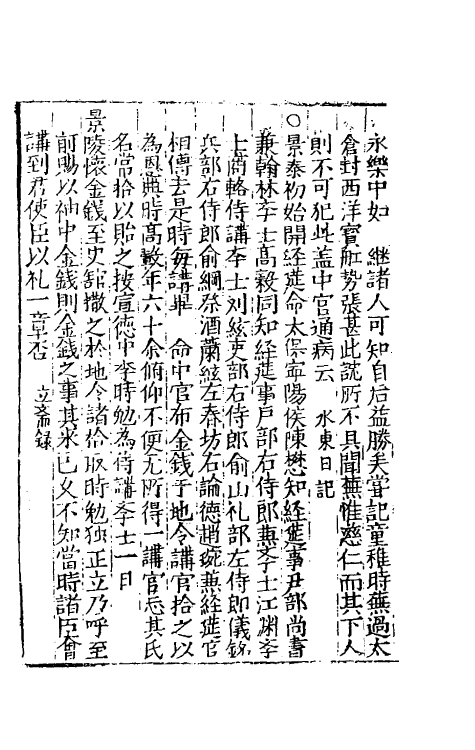 永樂中如　継諸人可知自后益勝矣嘗記童稚時蕪過太
倉封西洋寳舡勢張甚此䟽所不具聞蕪惟慈仁而其下人
則不可犯此盖中官通病云　水東日記
○景泰初始開経筵命太保寜陽侯陳懋知経筵事尹部尚書
兼翰林李士高穀同知経筵事戸部右侍郎兼李士江渊李
士商輅侍講李士刘絃吏部右侍郎俞山礼部左侍郎儀銘
兵部右侍郎俞綱祭酒蕭絃左春坊右諭德趙琬兼経筵官
相傳去是時每講畢　命中官布金錢于地令講官拾之以
為恩典時高穀年六十余俯仰不便无所得一講官忘其氏
名常拾以貽之按宣德中李時勉為侍講李士一日
景陵懷金錢至史舘撒之於地令諸拾取時勉独正立乃呼至
前賜以袖中金錢則金錢之事其來已乆不知當時諸臣會
講到君使臣以礼一章否　立斋錄